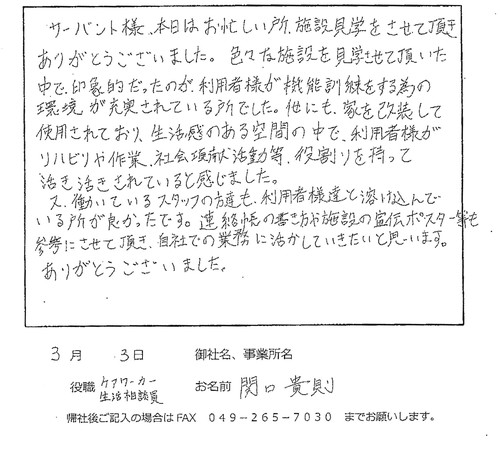 サーバント様、本日はお忙しい所、施設見学をさせて頂き
ありがとうございました。色々な施設を見学させて頂いた
中で、印象的だったのが、利用者様が機能訓練をする為の
環境が充実されている所でした。他にも、家を改装して
使用されており、生活感のある空間の中で、利用者様が
リハビリや作業、社会貢献活動等、役割りを持って
活き活きされていると感じました。
又、働いているスタッフの方達も、利用者様達と溶け込んで
いる所が良かったです。連絡帳の書き方や施設の宣伝ポスター等も
参考にさせて頂き、自社での業務に活かしていきたいと思います。
ありがとうございました。
3月 3日 御社名、事業所名
役職 ケアワーカー 生活相談員 お名前 関口 貴則
帰社後ご記入の場合はFAX 049-265-7030 までお願いします。